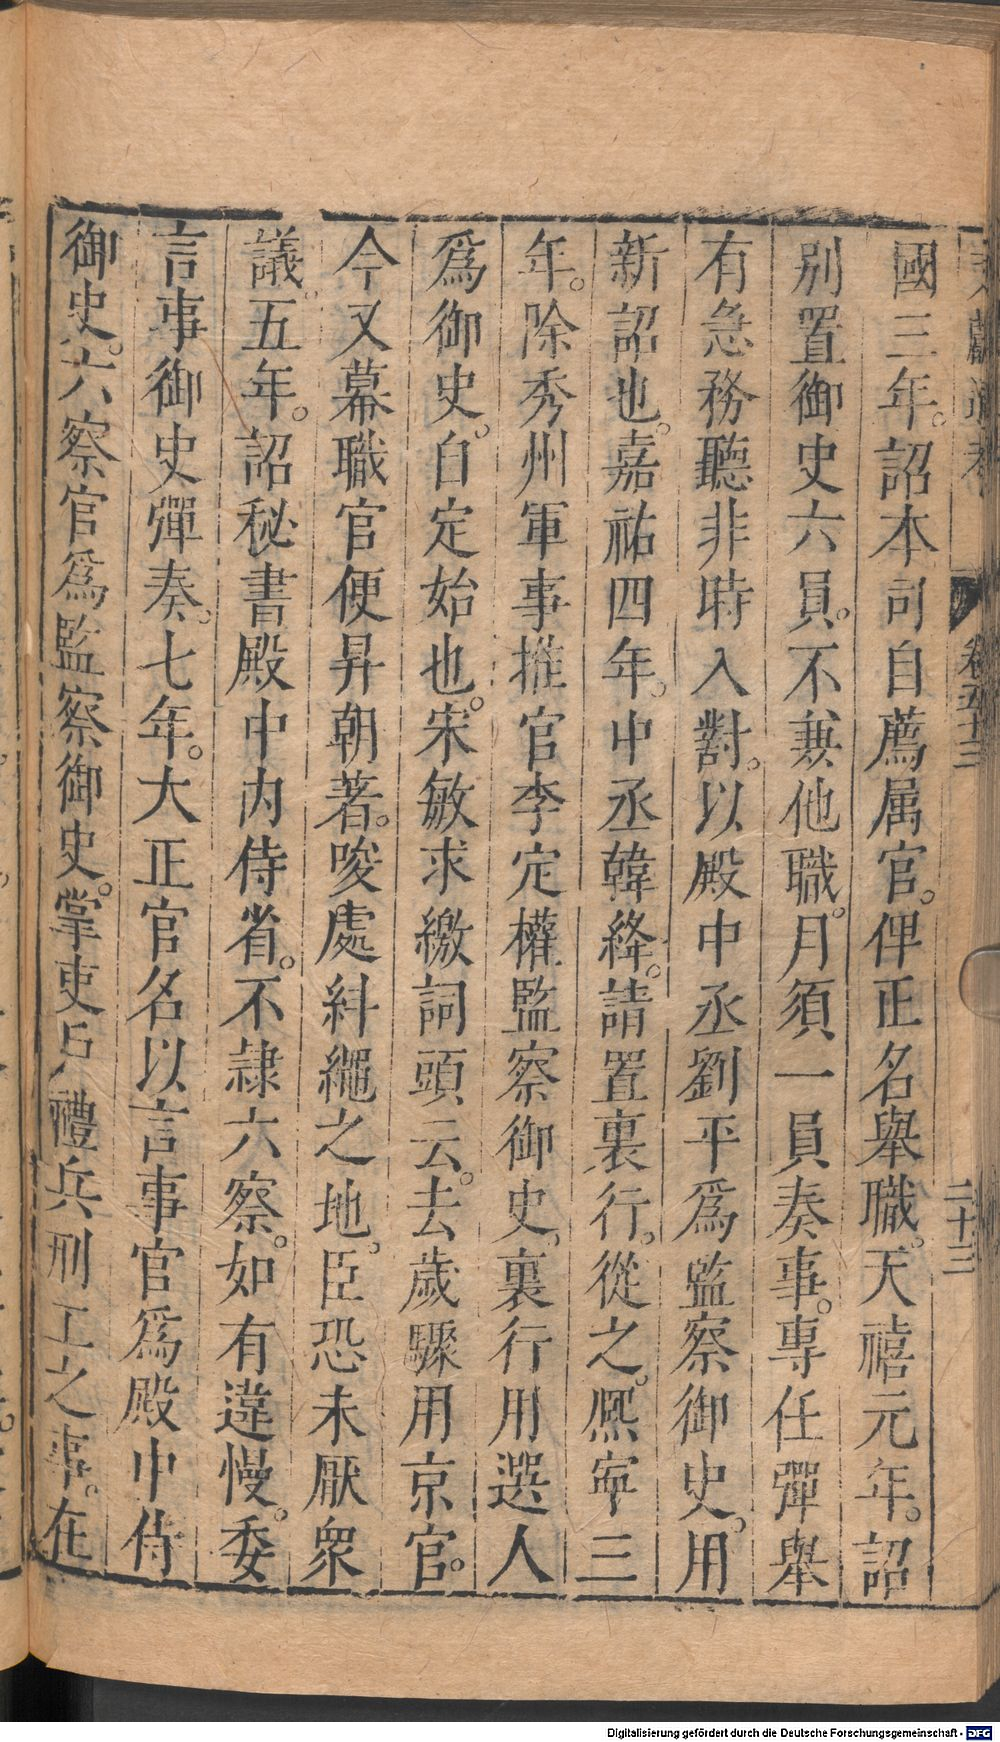 國三年。詔本司自薦属官。俾正名舉職。天禧元年。詔
別置御史六員。不兼他職。月須一員奏事。專任彈舉
有急務聽非時入對。以殿中丞劉平爲監察御史。用
新詔也。嘉祐四年。中丞韓絳。請置裏行。從之。熙寧三
年。除秀州軍事推官李定權監察御史。裏行用選人
爲御史。自定始也。宋敏求繳詞頭云。去歲驟用京官。
今又幕職官便昇朝著。唆處糾繩之地。臣恐未厭衆
議。五年。詔秘書殿中內侍省。不隷六察。如有違慢。委
言事御史彈奏。七年。大正官名以言事官爲殿中侍
御史。六察官爲監察御史。掌吏戶禮兵刑工之事。在
文獻通考 卷五十三 二十三
Digitalisierung gefördert durch die Deutsche Forschungsgemeinschaft - DFG